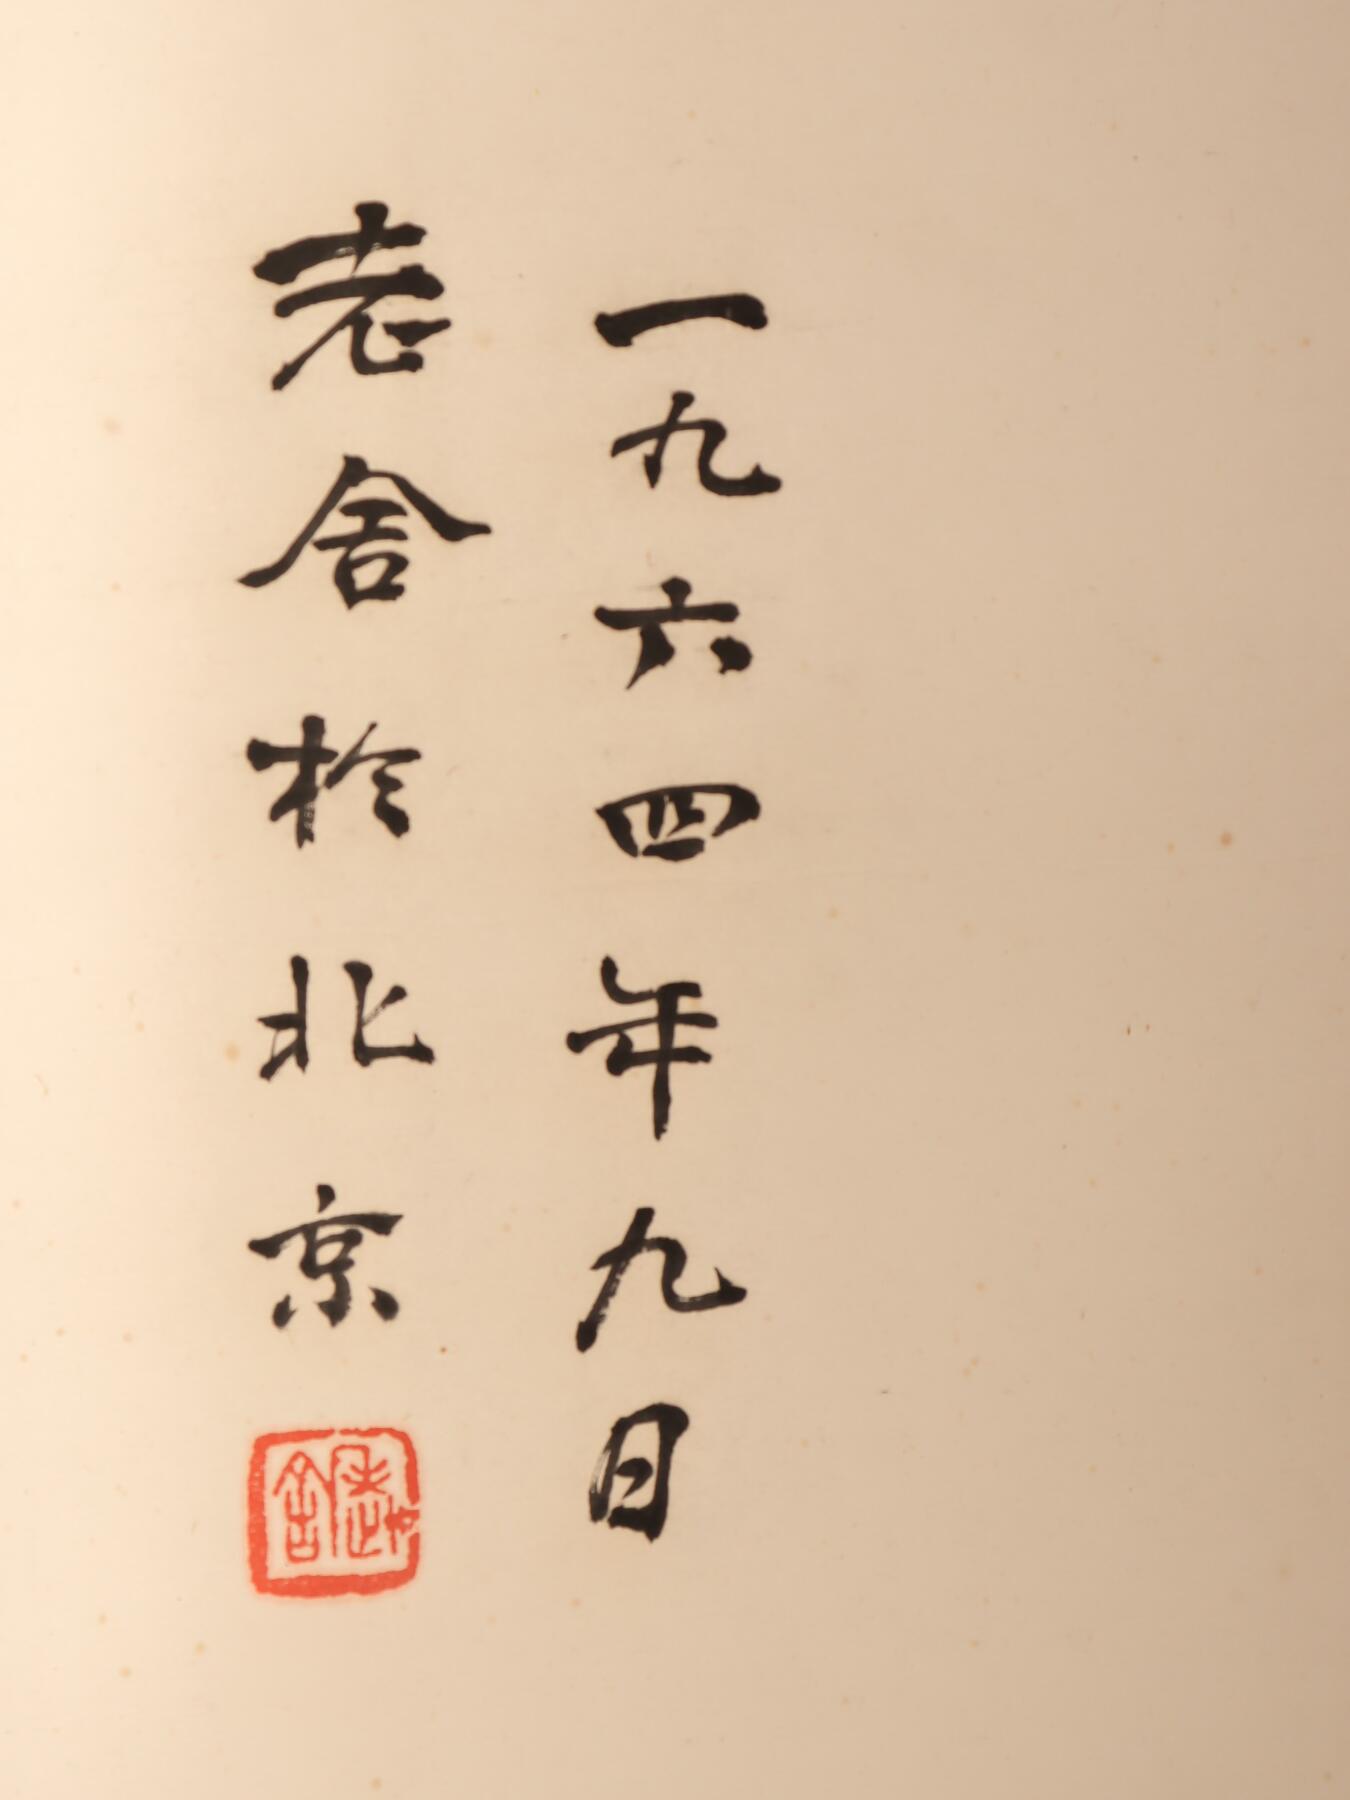 一九六四年九日
老舍於北京
老舍